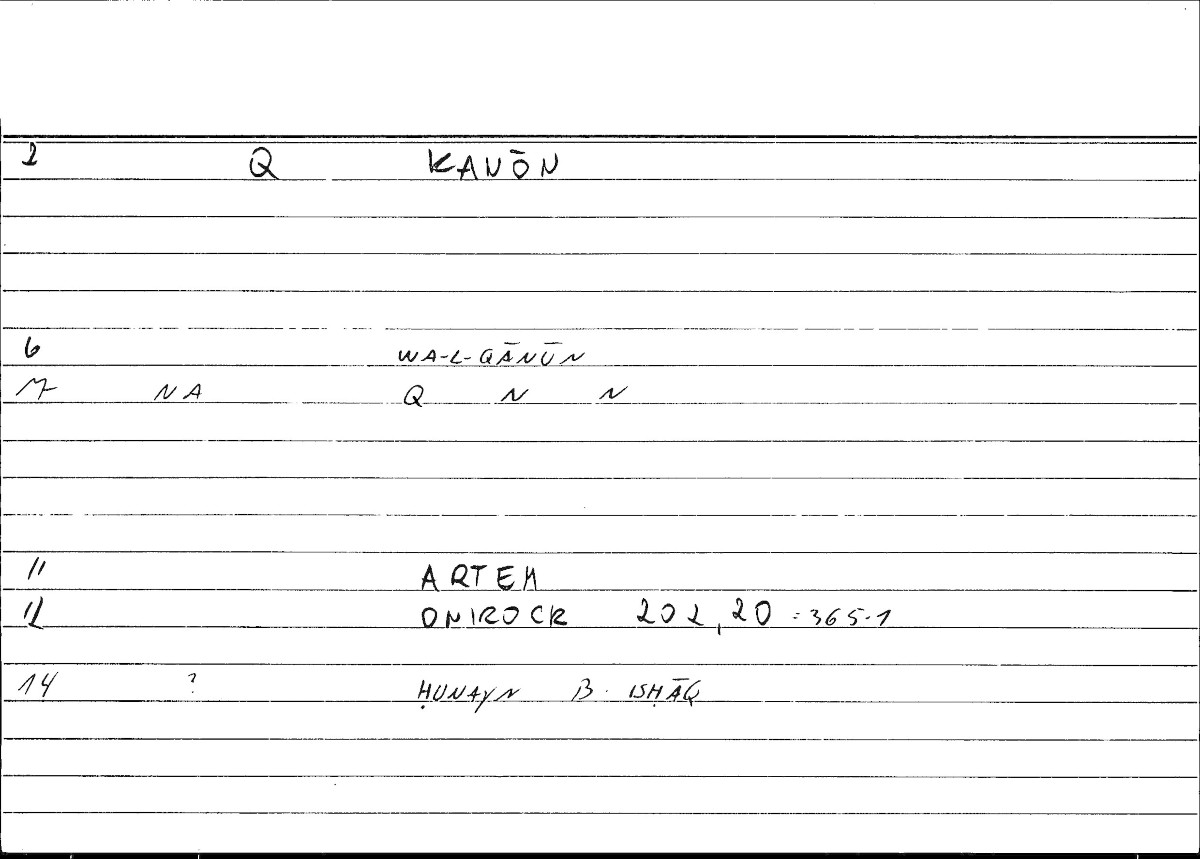 2 Q KANŌN
6 WA-L-QĀNŪN
7 NA Q N N
11 ARTEM
12 ONIROCR 202,20 = 365.1
14 ? ḤUNAYN B. ISḤĀQ